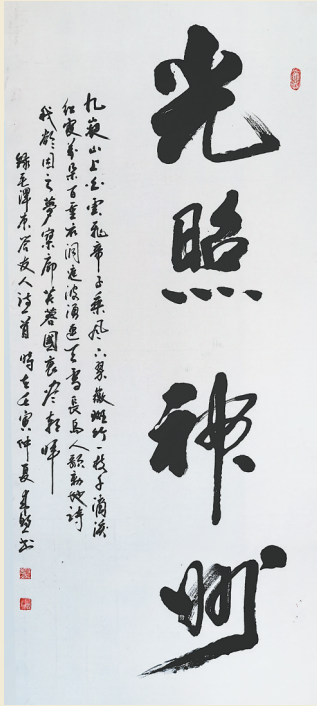 光照神州
九嶷山上白雲飛帝子乘風下翠微斑竹一枝千滴淚
紅霞萬朵百重衣洞庭波湧連天雪長島人歌動地詩
我欲因之夢寥廓芙蓉國裏盡朝暉
錄毛澤東答友人詩一首 時在壬寅仲夏 书